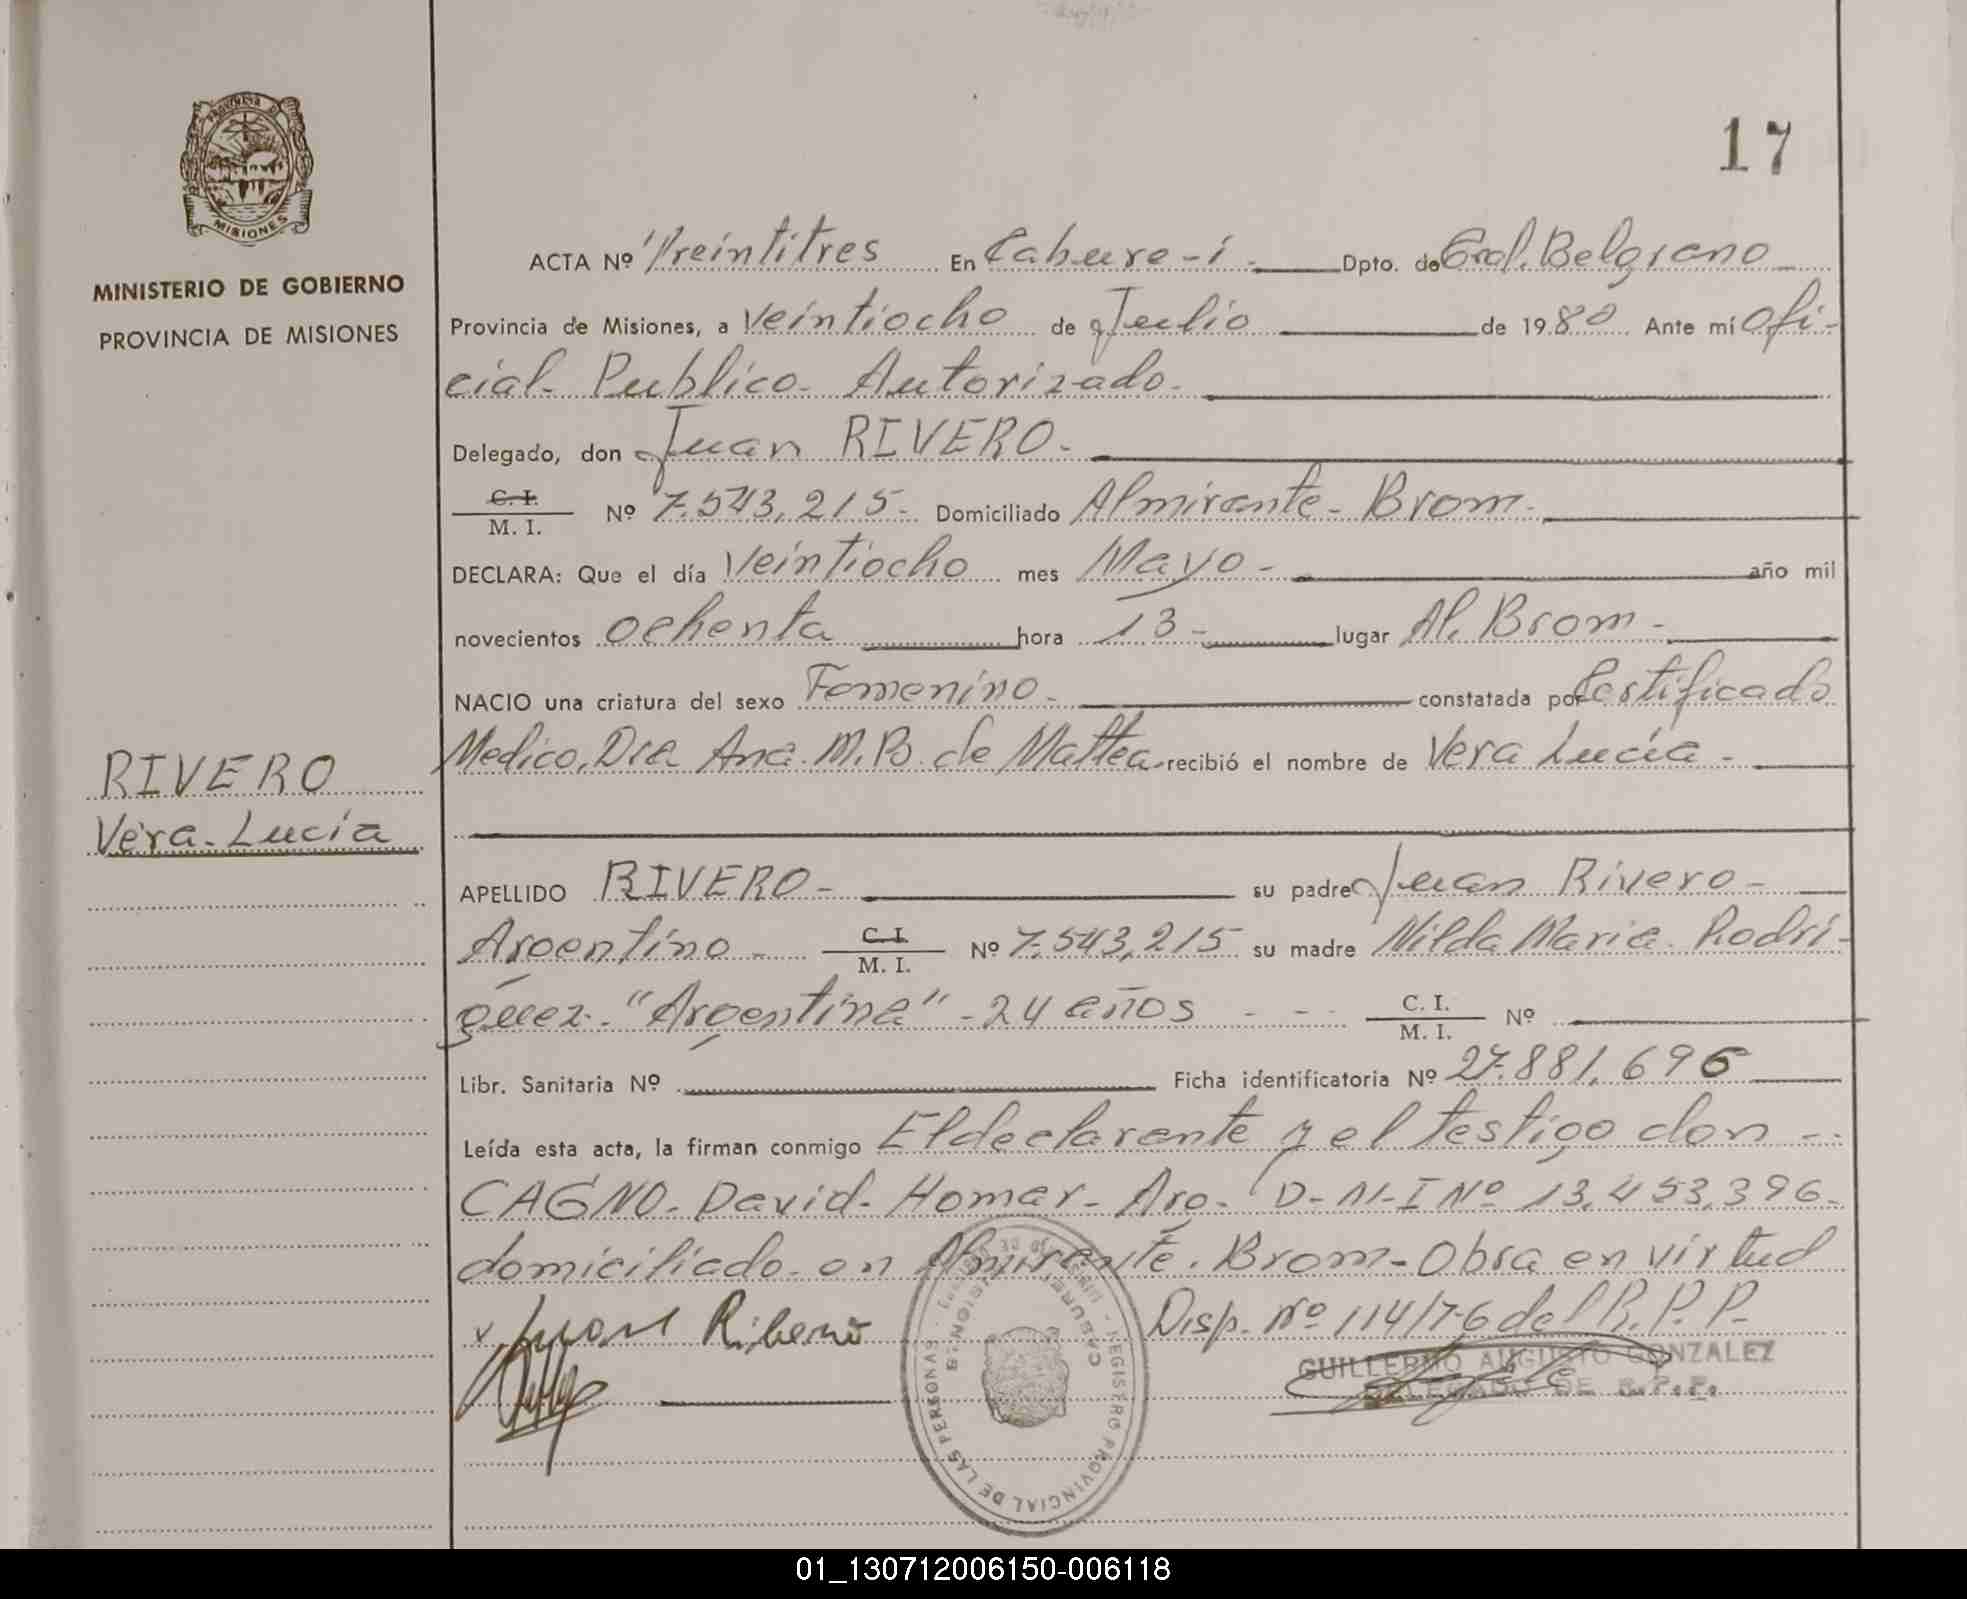 17
PROVINCIA D
MISIONES
MINISTERIO DE GOBIERNO
PROVINCIA DE MISIONES
RIVERO
Vera-Lucía
ACTA Nº Treintitres En Cabure-í - Dpto. de Gral. Belgrano
Provincia de Misiones, a Veintiocho de Julio de 1980 Ante mí Ofi-
cial- Publico- Autorizado-
Delegado, don Juan RIVERO-
C. I. / M. I. Nº 7.543,215- Domiciliado Almirante- Brom-
DECLARA: Que el día Veintiocho mes Mayo - año mil
novecientos ochenta hora 13- lugar Al. Brom-
NACIO una criatura del sexo Femenino- constatada por Certificado
Medico, Dra Ana. M. B. de Mattea recibió el nombre de Vera Lucía -
APELLIDO RIVERO- su padre Juan Rivero-
Argentino- C. I. / M. I. Nº 7.543,215 su madre Nilda Maria- Rodrí-
guez- "Argentina" -24 años - - - C. I. / M. I. Nº
Libr. Sanitaria Nº Ficha identificatoria Nº 27.881,696
Leída esta acta, la firman conmigo El declarante y el testigo don -
CAGNO- David- Homar- Arg- D-N-I Nº 13,453,396-
domiciliado- en Almirante. Brom- Obra en virtud
Disp. Nº 114/76 del R. P. P.
x Juan Ribero
GUILLERMO AUGUSTO GONZALEZ
DELEGADO DE R.P.P.
REGISTRO PROVINCIAL DE LAS PERSONAS
CABURE-I
MISIONES
01_130712006150-006118